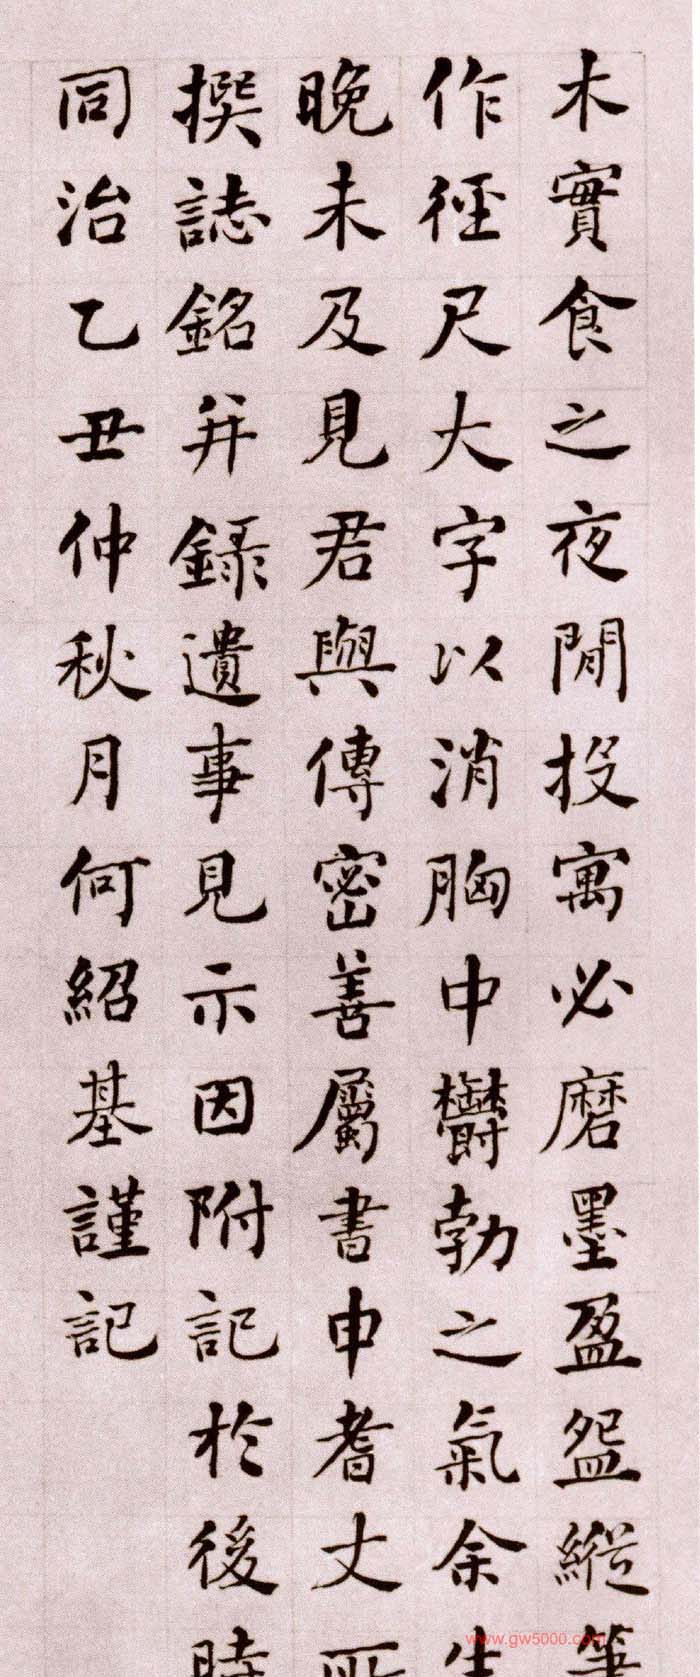 木實食之夜閒投寓必磨墨盈盌縱筆
作徑尺大字以消胸中鬱勃之氣余生
晚未及見君與傳密善屬書申耆丈所
撰誌銘并錄遺事見示因附記於後時
同治乙丑仲秋月何紹基謹記
www.gw5000.com